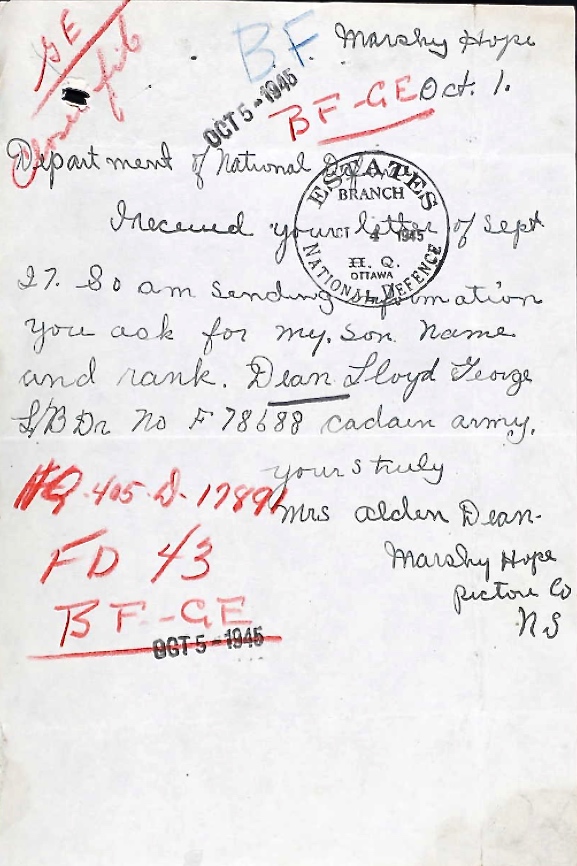 GE
Close file
B.F.
Marshy Hope
OCT 5 - 1945
BF-GE
Oct. 1.
Department of National Defence
ESTATES
BRANCH
OCT 4 1945
H. Q.
OTTAWA
NATIONAL DEFENCE
I received your letter of Sept
27. So am sending information
you ask for my. son name
and rank. Dean Lloyd George
L/BDr No F 78688 cadain army.
yours truly
HQ. 405. D. 1789
Mrs Alden Dean-
FD 43
Marshy Hope
Pictou Co
BF-GE
NS
OCT 5 - 1945